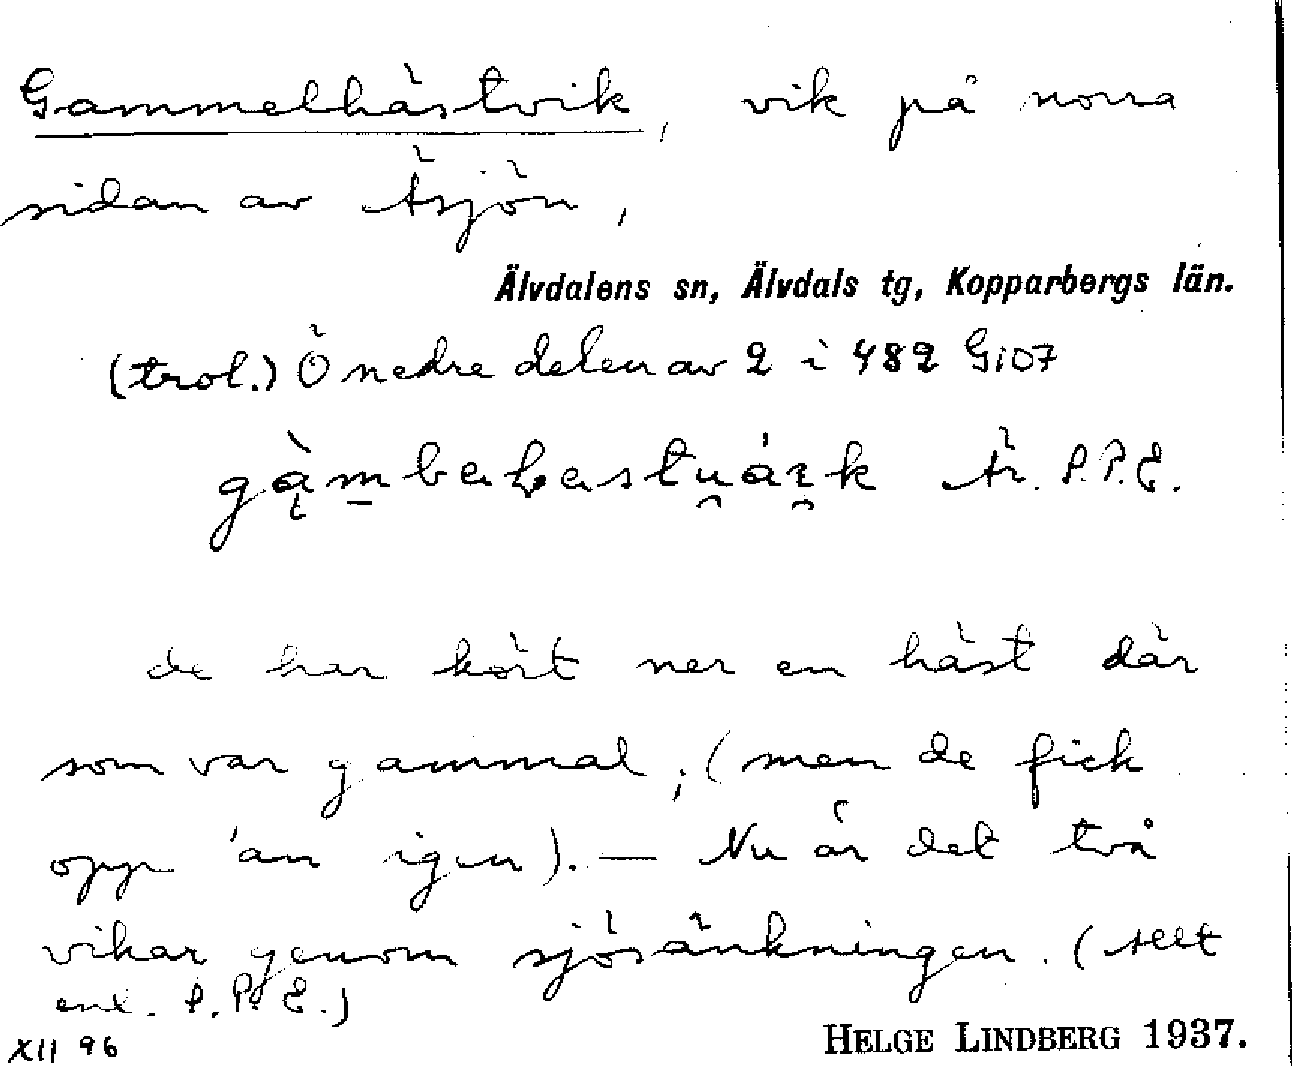 Gammelhästvik, vik på norra
sidan av Äsjön,
Älvdalens sn, Älvdals tg, Kopparbergs län.
(trol.) Ö nedre delen av 2 i 482 Gi07
Är. P.P.E.
de har kört ner en häst där
som var gammal; (men de fick
opp 'an igen). — Nu är det två
vikar genom sjösänkningen. (allt
enl. P.P.E.)
XII 96
HELGE LINDBERG 1937.